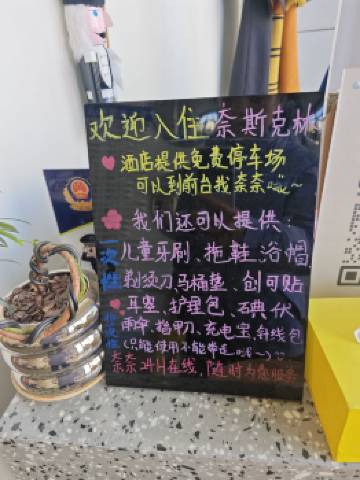 欢迎入住奈斯克林
酒店提供免费停车场
可以到前台找奈奈哦~
我们还可以提供:
一次性
儿童牙刷、拖鞋、浴帽
剃须刀、马桶垫、创可贴
耳塞、护理包、碘伏
雨伞、指甲刀、充电宝、针线包
(只能使用不能带走哦~)
奈奈24H在线,随时为您服务